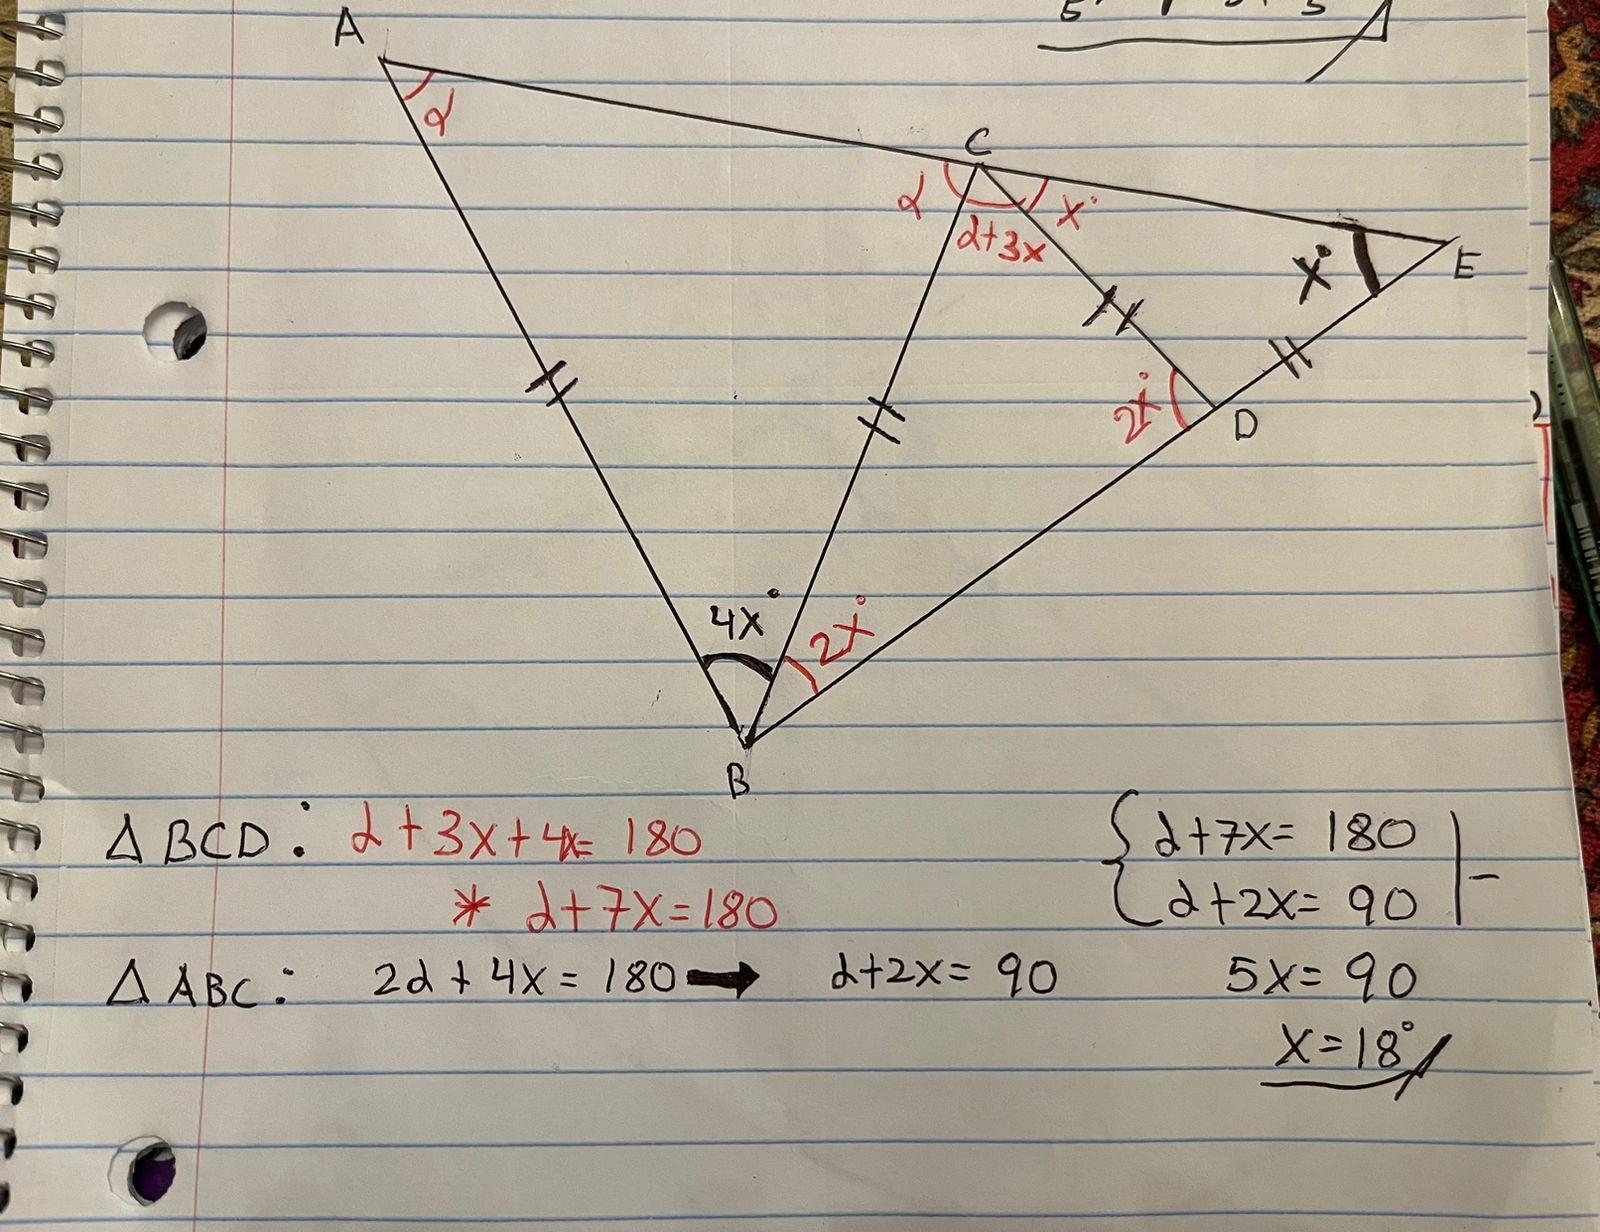 A
α
C
α
α+3x
x°
x°
E
2x°
D
4x°
2x°
B
△ BCD: α+3x+4x= 180
* α+7x=180
△ ABC: 2α + 4x = 180 → α+2x= 90
{ α+7x= 180
α+2x= 90 | -
5x= 90
x=18°